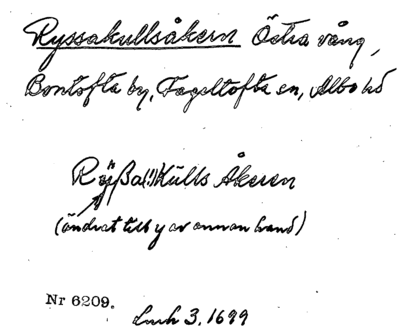 Ryssakullsåkern Östra vång,
Bontofta by, Fågeltofta sn, Albo hd
Röÿßa(!)Kulls Åkeren
(ändrat till y av annan hand)
Nr 6209.
Lmh 3, 1699